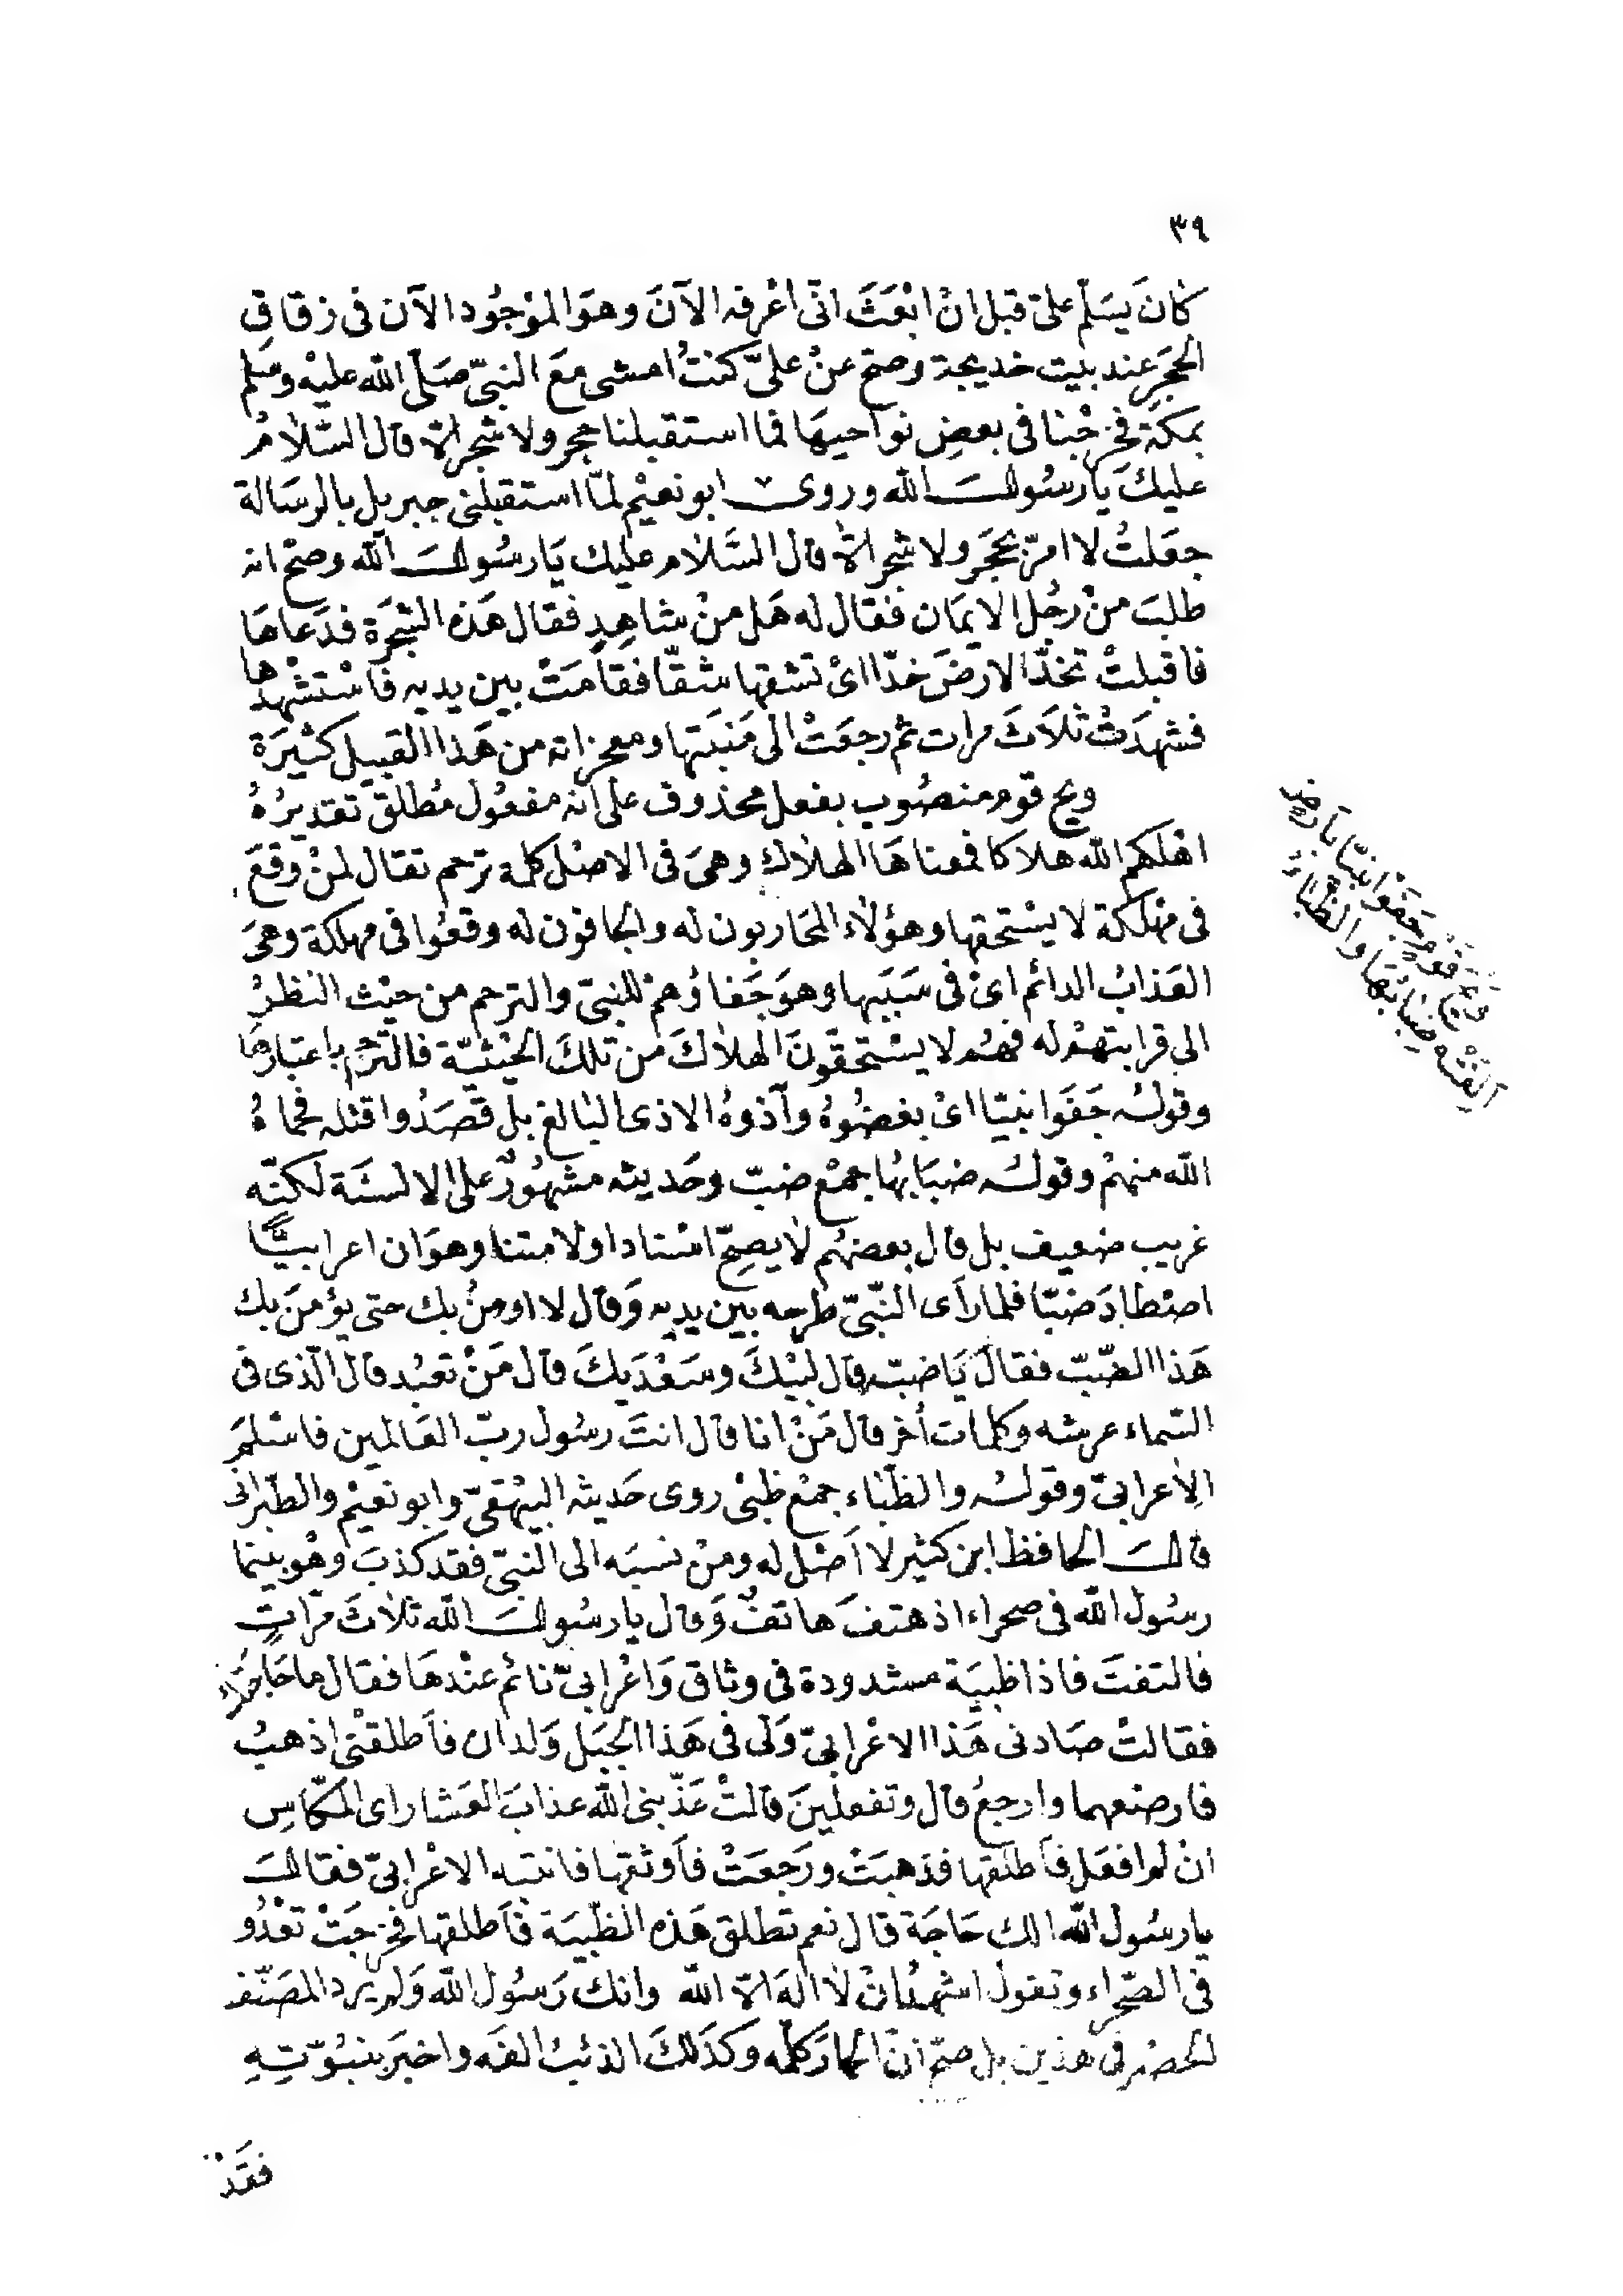 ٣٩
كانَ يسَلّم علىّ قبل انْ ابْعَثَ انّى اعْرفه الآنَ وهوَ الموْجُود الآن فى زقاقِ
الحجَرِ عند بيت خديجة وصحّ عنْ علىّ كنتُ امشى مَعَ النبىّ صَلّى الله عليْه وسَلم
بمكة فخرجْنا فى بعضِ نواحيهَا فما استقبلنا حجر ولا شجر الّا قال السَّلامُ
عليكَ يا رسُولَ الله وروى ابو نعيْم لمّا استقبلنى جبريل بالرسَالة
جعَلتُ لا امرّ بحَجَر ولا شجر الّا قال السَّلام عليك يَا رسُولَ الله وصحّ انه
طلبَ منْ رجُل الايمَان فقال له هَل منْ شاهِدٍ فقال هَذه الشجَرة فدَعاهَا
فاقبلتْ تخدّ الارضَ خدّا اىْ تشقها شقّا فقامَتْ بين يديه فاسْتشْهدَها
فشهدَتْ ثلاَثَ مرات ثم رجعَتْ الى مَنبَتها ومعجزاته من هَذا القبيل كثيرَة
ويح قوم منصُوب بفعل محذوف على انه مفعُول مُطلق تقديرُهُ
اهْلكهم الله هلاكا فمعناهَا الهلاك وهىَ فى الاصْل كلمة ترحم تقال لمنْ وقعَ
فى مهْلكة لا يسْتحقها وهؤلاء المحَاربون له والجافون له وقعُوا فى مهلكة وهىَ
العَذابُ الدائم اىْ فى سَبَبها وهوَ جَفاؤهمْ للنبىّ والترحم من حيْث النظرُ
الى قرابتهمْ له فهُم لا يسْتحقونَ الهلاكَ من تلكَ الحيْثيّة فالترحم باعتبارها
وقولُه جَفَوا نبيّا اىْ بغضُوهُ وآذوهُ الاذى البالغ بل قصَدُوا قتله فحماهُ
الله منهمْ وقولُه ضبَابُها جمْع ضبّ وحَديثه مشهُورٌ على الالسنَة لكنّه
غريب ضعيف بل قال بعضهُم لا يصِحّ اسْنادا ولا متنا وهوَ ان اعرابيًّا
اصْطادَ ضبّا فلما رأى النّبىّ طرحه بين يديه وَقال لا اومنُ بك حتى يؤمنَ بك
هَذا الضّبّ فقالَ يَا ضبّ قال لبيْكَ وسَعْدَيكَ قال مَنْ تعبُد قال الّذى فى
السّماء عرشه وكلمات أُخر قال مَنْ انا قال انتَ رسُول ربّ العَالمين فاسْلمَ
الاعرابىّ وقولُه والظّباء جمْع ظبْى روى حَديثه البيْهقىّ وابو نعيْم والطبرانى
قالَ الحافظ ابن كثير لا أَصْل له ومنْ نسبَه الى النّبىّ فقد كذبَ وهْو بينما
رسُول الله فى صحراء اذ هتفَ هاتفٌ وَقال يا رسُولَ الله ثلاثَ مرّاتٍ
فالتفتَ فاذا ظبيَة مشدودة فى وثاق وَاعْرابىّ نائم عنْدهَا فقال ما حَاجتُكِ
فقالتْ صَادنى هَذا الاعْرابىّ وَلى فى هَذا الجبَل وَلدان فأَطلقْنى اذهبُ
فارضعهما وارجعُ قال وتفعلينَ قالتْ عَذّبنى الله عذابَ العَشار اى المكّاسِ
انْ لم افعَل فأَطلقها فذهبَتْ ورَجعَتْ فأَوثقها فانتبه الاعْرابىّ فقالَ
يا رسُول الله الك حَاجَة قال نعم تطلق هَذه الظّبيَة فأَطلقها فخرجَتْ تعْدُو
فى الصّحراء وتقول اشهدُ انْ لا الهَ الّا الله وانك رَسُول الله وَلم يرد المصَنّف
الحصْر فى هذين بل صحّ انّ الحمارَ كلّمه وكذَلكَ الذئبُ الفَه واخبَر بنبُوّتِهِ
وَيْحَ قَوْمٍ جَفَوْا نَبِيًّا بِأَرْضٍ
أَلِفَتْهُ ضِبَابُهَا وَالظِّبَاءُ
فقَدْ